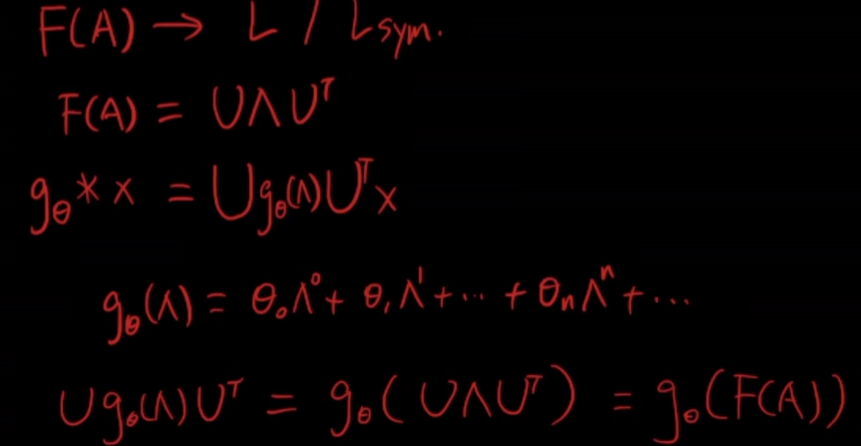 F(A) → L / Lsym.
F(A) = UΛUᵀ
gθ * x = Ugθ(Λ)Uᵀx
gθ(Λ) = θ₀Λ⁰ + θ₁Λ¹ + ... + θₙΛⁿ + ...
Ugθ(Λ)Uᵀ = gθ(UΛUᵀ) = gθ(F(A))